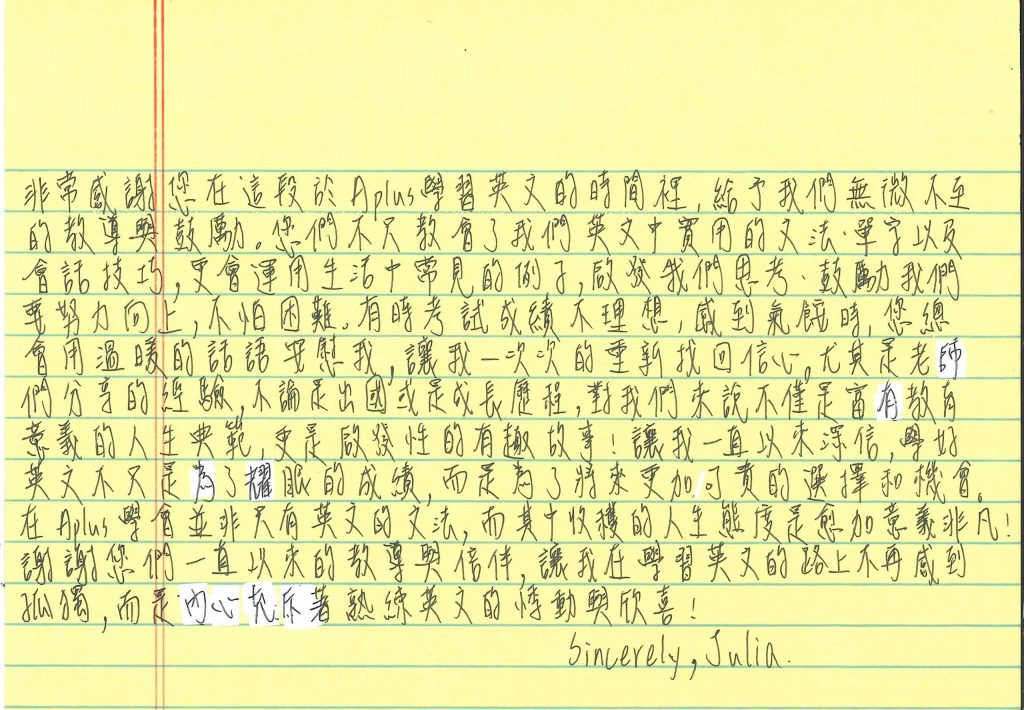 非常感謝您在這段於Aplus學習英文的時間裡,給予我們無微不至
的教導與鼓勵。您們不只教會了我們英文中實用的文法、單字以及
會話技巧,更會運用生活中常見的例子,啟發我們思考、鼓勵我們
要努力向上,不怕困難。有時考試成績不理想,感到氣餒時,您總
會用溫暖的話語安慰我,讓我一次次的重新找回信心。尤其是老師
們分享的經驗,不論是出國或是成長歷程,對我們來說不僅是富有教育
意義的人生典範,更是啟發性的有趣故事!讓我一直以來深信,學好
英文不只是為了耀眼的成績,而是為了將來更加可貴的選擇和機會。
在Aplus學會並非只有英文的文法,而其中收穫的人生態度是愈加意義非凡!
謝謝您們一直以來的教導與陪伴,讓我在學習英文的路上不再感到
孤獨,而是內心充斥著熟練英文的悸動與欣喜!
Sincerely, Julia.